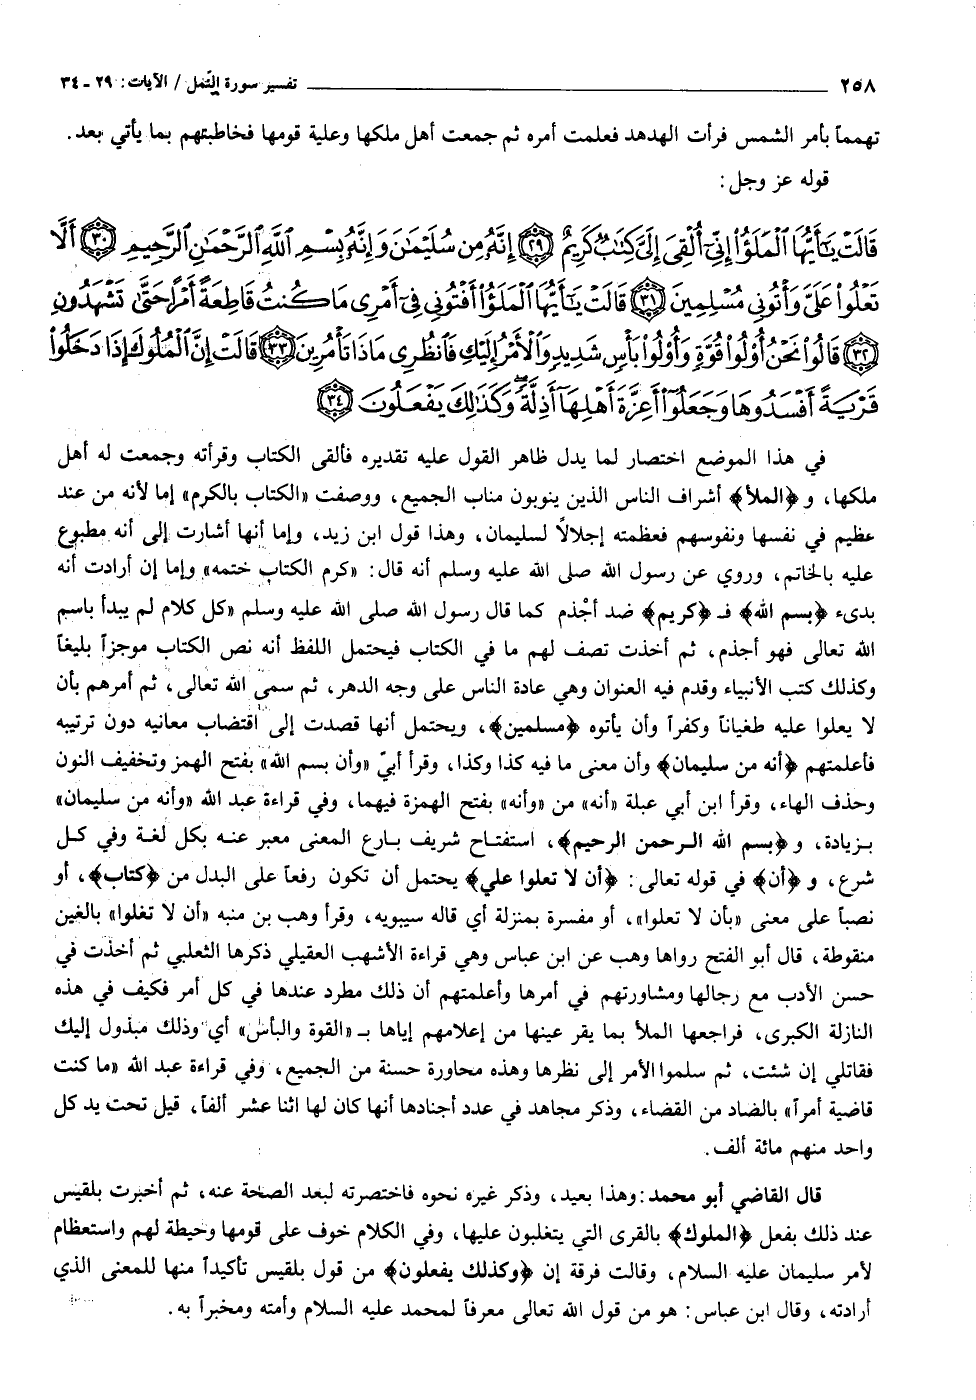 ٢٥٨ تفسير سورة النمل / الآيات: ٢٩ - ٣٤
تهمماً بأمر الشمس فرأت الهدهد فعلمت أمره ثم جمعت أهل ملكها وعلية قومها فخاطبتهم بما يأتي بعد.
قوله عز وجل:
قَالَتْ يَٰٓأَيُّهَا ٱلْمَلَؤُا۟ إِنِّىٓ أُلْقِىَ إِلَىَّ كِتَٰبٌ كَرِيمٌ ﴿٢٩﴾ إِنَّهُۥ مِن سُلَيْمَٰنَ وَإِنَّهُۥ بِسْمِ ٱللَّهِ ٱلرَّحْمَٰنِ ٱلرَّحِيمِ ﴿٣٠﴾ أَلَّا
تَعْلُوا۟ عَلَىَّ وَأْتُونِى مُسْلِمِينَ ﴿٣١﴾ قَالَتْ يَٰٓأَيُّهَا ٱلْمَلَؤُا۟ أَفْتُونِى فِىٓ أَمْرِى مَا كُنتُ قَاطِعَةً أَمْرًا حَتَّىٰ تَشْهَدُونِ
﴿٣٢﴾ قَالُوا۟ نَحْنُ أُو۟لُوا۟ قُوَّةٍ وَأُو۟لُوا۟ بَأْسٍ شَدِيدٍ وَٱلْأَمْرُ إِلَيْكِ فَٱنظُرِى مَاذَا تَأْمُرِينَ ﴿٣٣﴾ قَالَتْ إِنَّ ٱلْمُلُوكَ إِذَا دَخَلُوا۟
قَرْيَةً أَفْسَدُوهَا وَجَعَلُوٓا۟ أَعِزَّةَ أَهْلِهَآ أَذِلَّةً ۖ وَكَذَٰلِكَ يَفْعَلُونَ ﴿٣٤﴾
في هذا الموضع اختصار لما يدل ظاهر القول عليه تقديره فألقى الكتاب وقرأته وجمعت له أهل
ملكها، و ﴿الملأ﴾ أشراف الناس الذين ينوبون مناب الجميع، ووصفت «الكتاب بالكرم» إما لأنه من عند
عظيم في نفسها ونفوسهم فعظمته إجلالاً لسليمان، وهذا قول ابن زيد، وإما أنها أشارت إلى أنه مطبوع
عليه بالخاتم، وروي عن رسول الله صلى الله عليه وسلم أنه قال: «كرم الكتاب ختمه» وإما إن أرادت أنه
بدىء ﴿بسم الله﴾ فـ ﴿كريم﴾ ضد أجْذم كما قال رسول الله صلى الله عليه وسلم «كل كلام لم يبدأ باسم
الله تعالى فهو أجذم، ثم أخذت تصف لهم ما في الكتاب فيحتمل اللفظ أنه نص الكتاب موجزاً بليغاً
وكذلك كتب الأنبياء وقدم فيه العنوان وهي عادة الناس على وجه الدهر، ثم سمى الله تعالى، ثم أمرهم بأن
لا يعلوا عليه طغياناً وكفراً وأن يأتوه ﴿مسلمين﴾، ويحتمل أنها قصدت إلى اقتضاب معانيه دون ترتيبه
فأعلمتهم ﴿أنه من سليمان﴾ وأن معنى ما فيه كذا وكذا، وقرأ أبيّ «وأن بسم الله» بفتح الهمز وتخفيف النون
وحذف الهاء، وقرأ ابن أبي عبلة «أنه» من «وأنه» بفتح الهمزة فيهما، وفي قراءة عبد الله «وأنه من سليمان»
بزيادة، و ﴿بسم الله الرحمن الرحيم﴾، استفتاح شريف بارع المعنى معبر عنه بكل لغة وفي كل
شرع، و ﴿أن﴾ في قوله تعالى: ﴿أن لا تعلوا علي﴾ يحتمل أن تكون رفعاً على البدل من ﴿كتاب﴾، أو
نصباً على معنى «بأن لا تعلوا»، أو مفسرة بمنزلة أي قاله سيبويه، وقرأ وهب بن منبه «أن لا تغلوا» بالغين
منقوطة، قال أبو الفتح رواها وهب عن ابن عباس وهي قراءة الأشهب العقيلي ذكرها الثعلبي ثم أخذت في
حسن الأدب مع رجالها ومشاورتهم في أمرها وأعلمتهم أن ذلك مطرد عندها في كل أمر فكيف في هذه
النازلة الكبرى، فراجعها الملأ بما يقر عينها من إعلامهم إياها بـ «القوة والبأس» أي وذلك مبذول إليك
فقاتلي إن شئت، ثم سلموا الأمر إلى نظرها وهذه محاورة حسنة من الجميع، وفي قراءة عبد الله «ما كنت
قاضية أمراً» بالضاد من القضاء، وذكر مجاهد في عدد أجنادها أنها كان لها اثنا عشر ألفاً، قيل تحت يد كل
واحد منهم مائة ألف.
قال القاضي أبو محمد: وهذا بعيد، وذكر غيره نحوه فاختصرته لبعد الصحة عنه، ثم أخبرت بلقيس
عند ذلك بفعل ﴿الملوك﴾ بالقرى التي يتغلبون عليها، وفي الكلام خوف على قومها وحيطة لهم واستعظام
لأمر سليمان عليه السلام، وقالت فرقة إن ﴿وكذلك يفعلون﴾ من قول بلقيس تأكيداً منها للمعنى الذي
أرادته، وقال ابن عباس: هو من قول الله تعالى معرفاً لمحمد عليه السلام وأمته ومخبراً به.